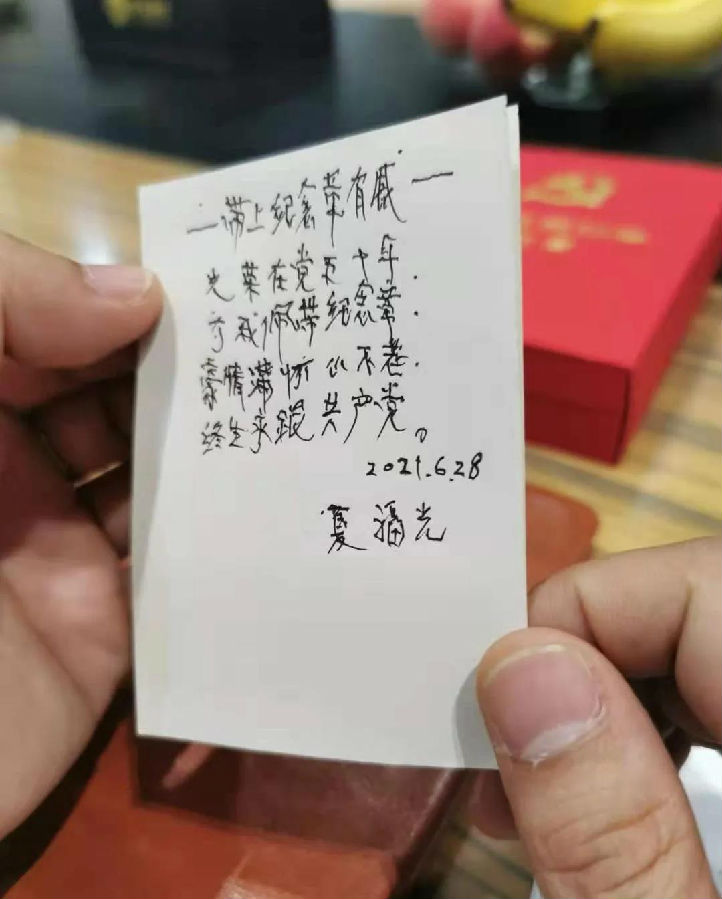 —带上纪念章有感—
光荣在党五十年.
今我佩带纪念章.
豪情满怀心不老.
终生永跟共产党。
2021.6.28
夏福光